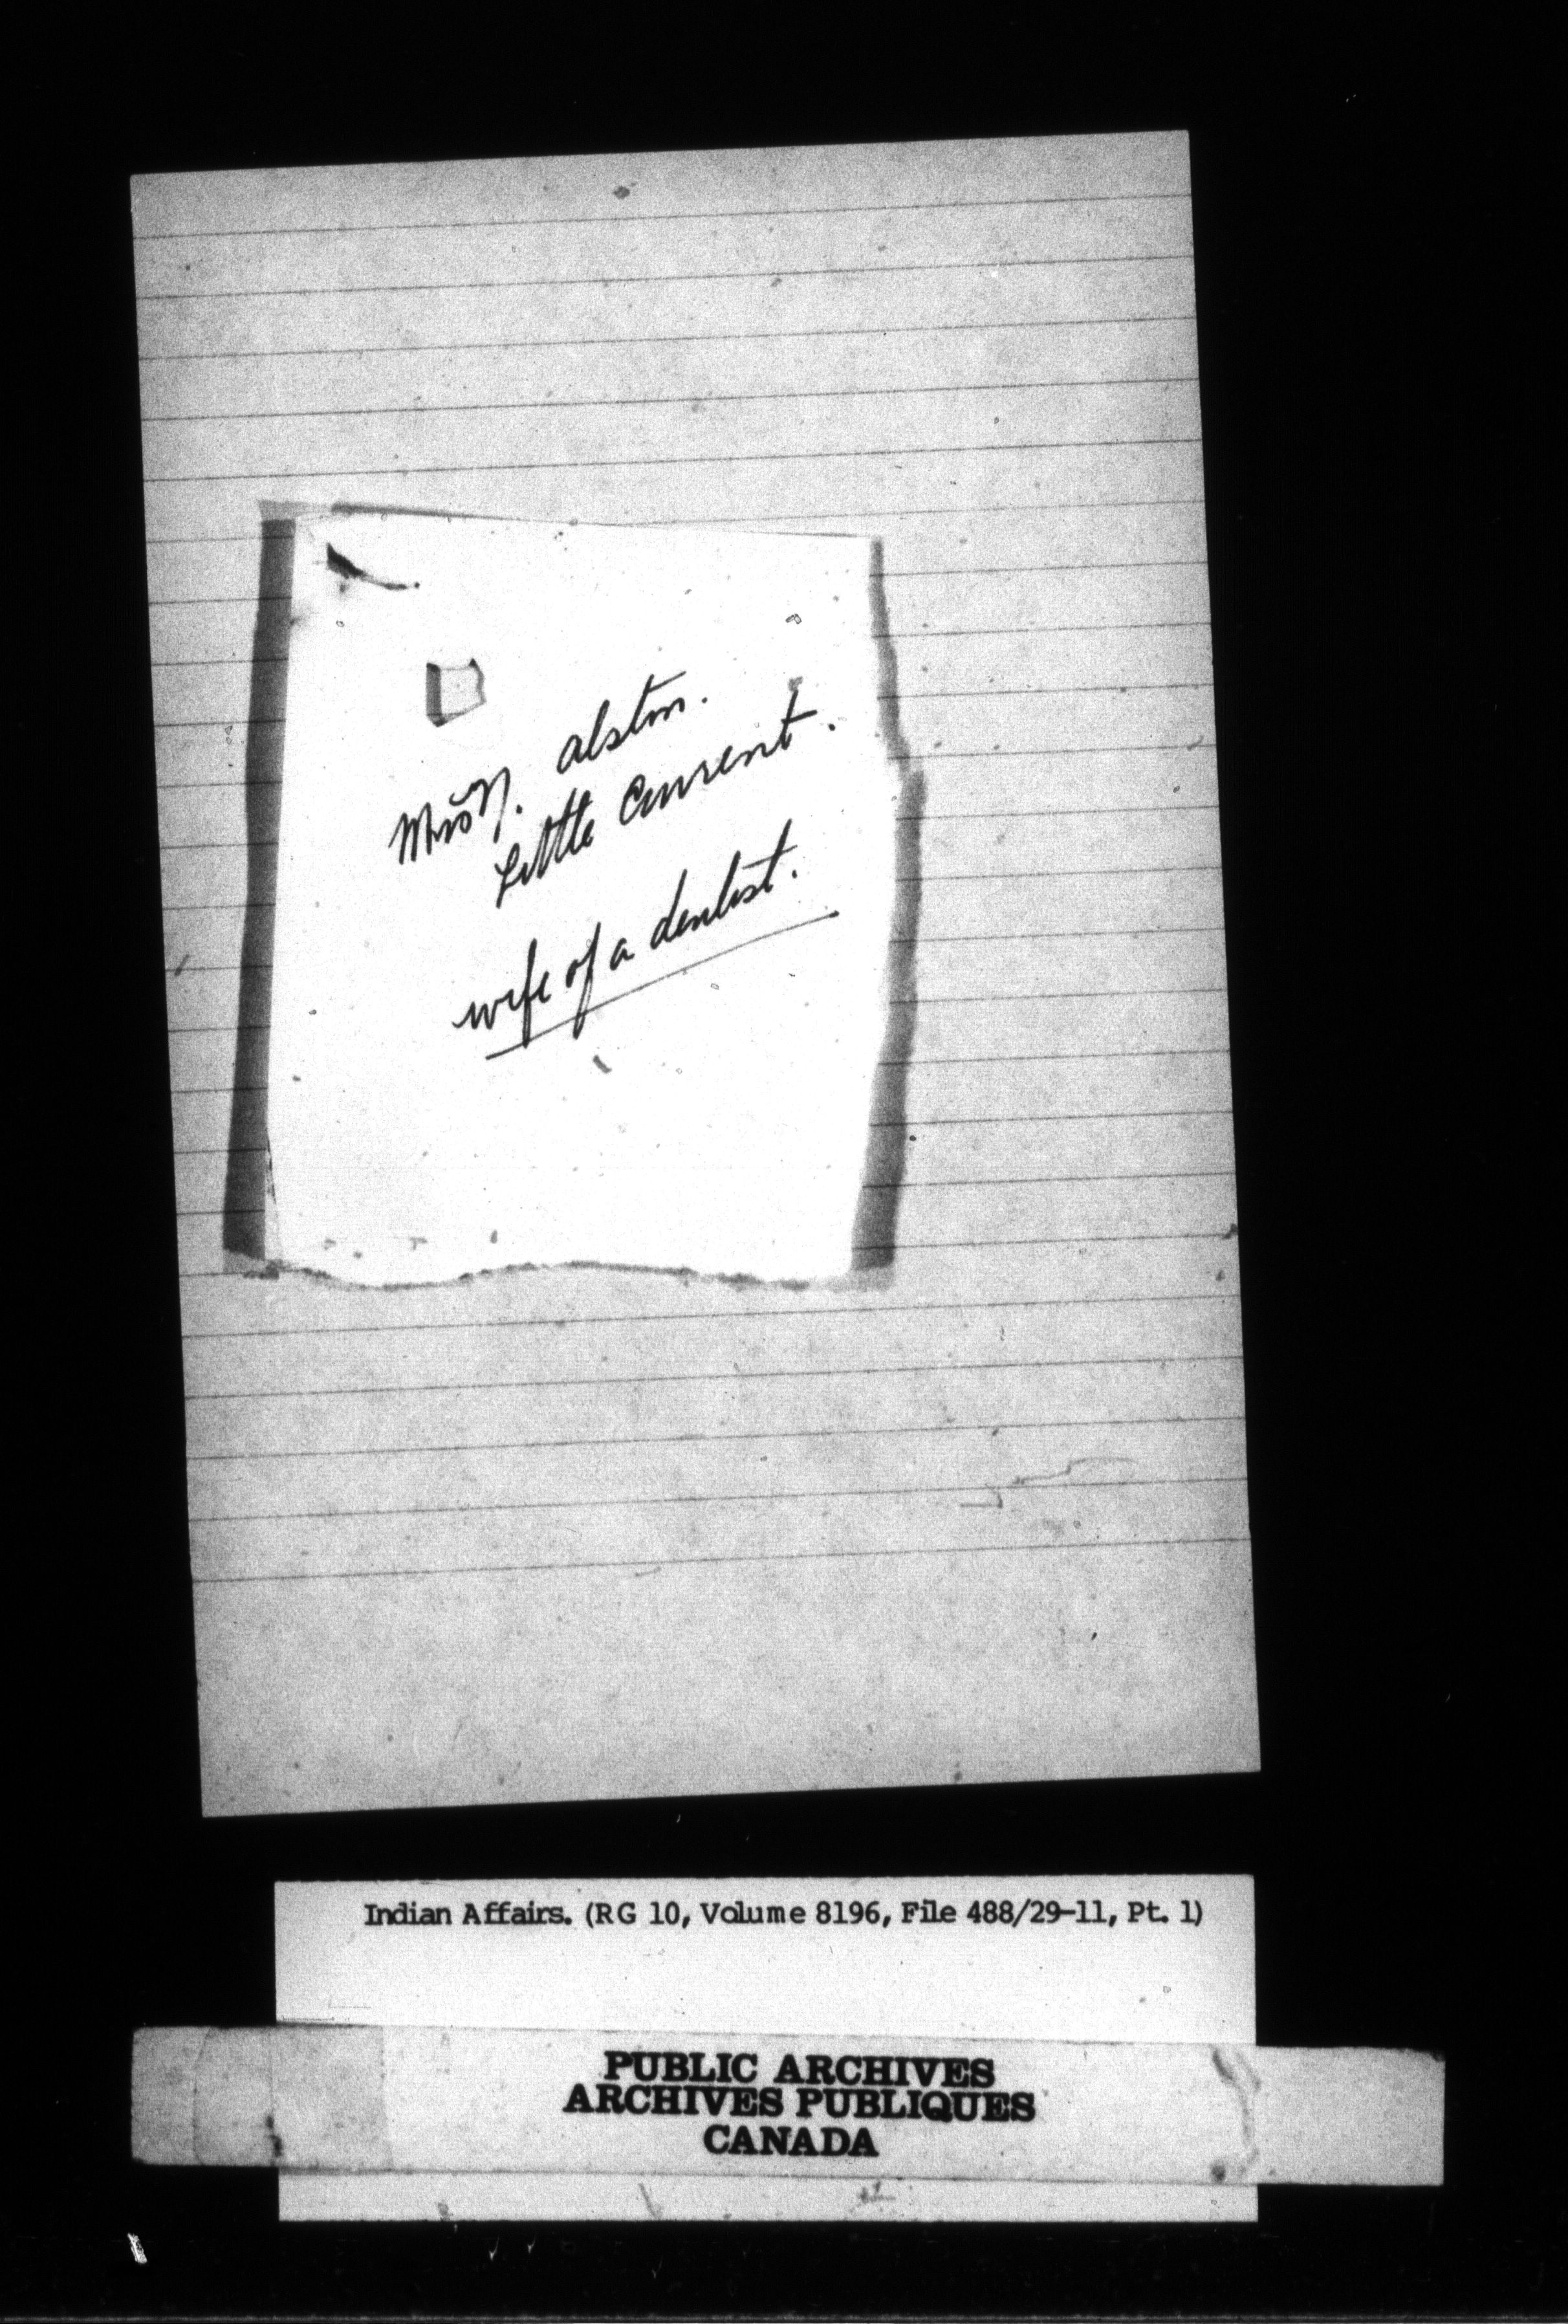 Mrs N. Alston.
Little Current.
wife of a dentist.
Indian Affairs. (RG 10, Volume 8196, File 488/29-11, Pt. 1)
PUBLIC ARCHIVES
ARCHIVES PUBLIQUES
CANADA